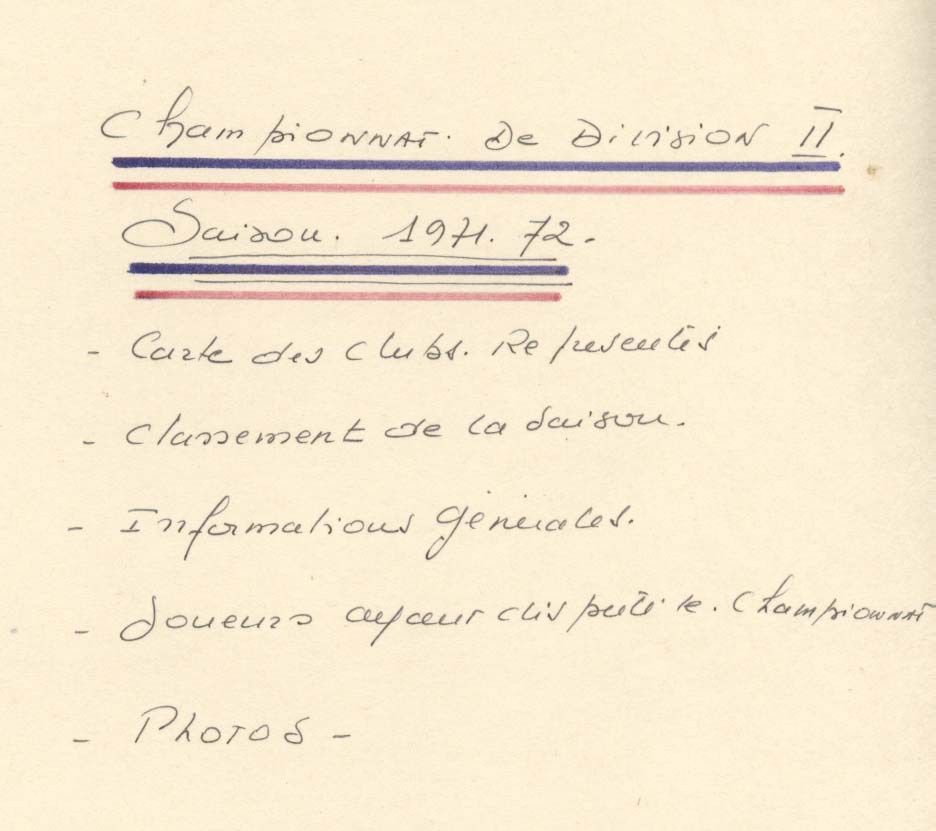 Championnat. De Division II.
Saison. 1971. 72.
- Carte des Clubs. Représentés
- Classement de la Saison.
- Informations Générales.
- Joueurs ayant disputé le. Championnat
- Photos -